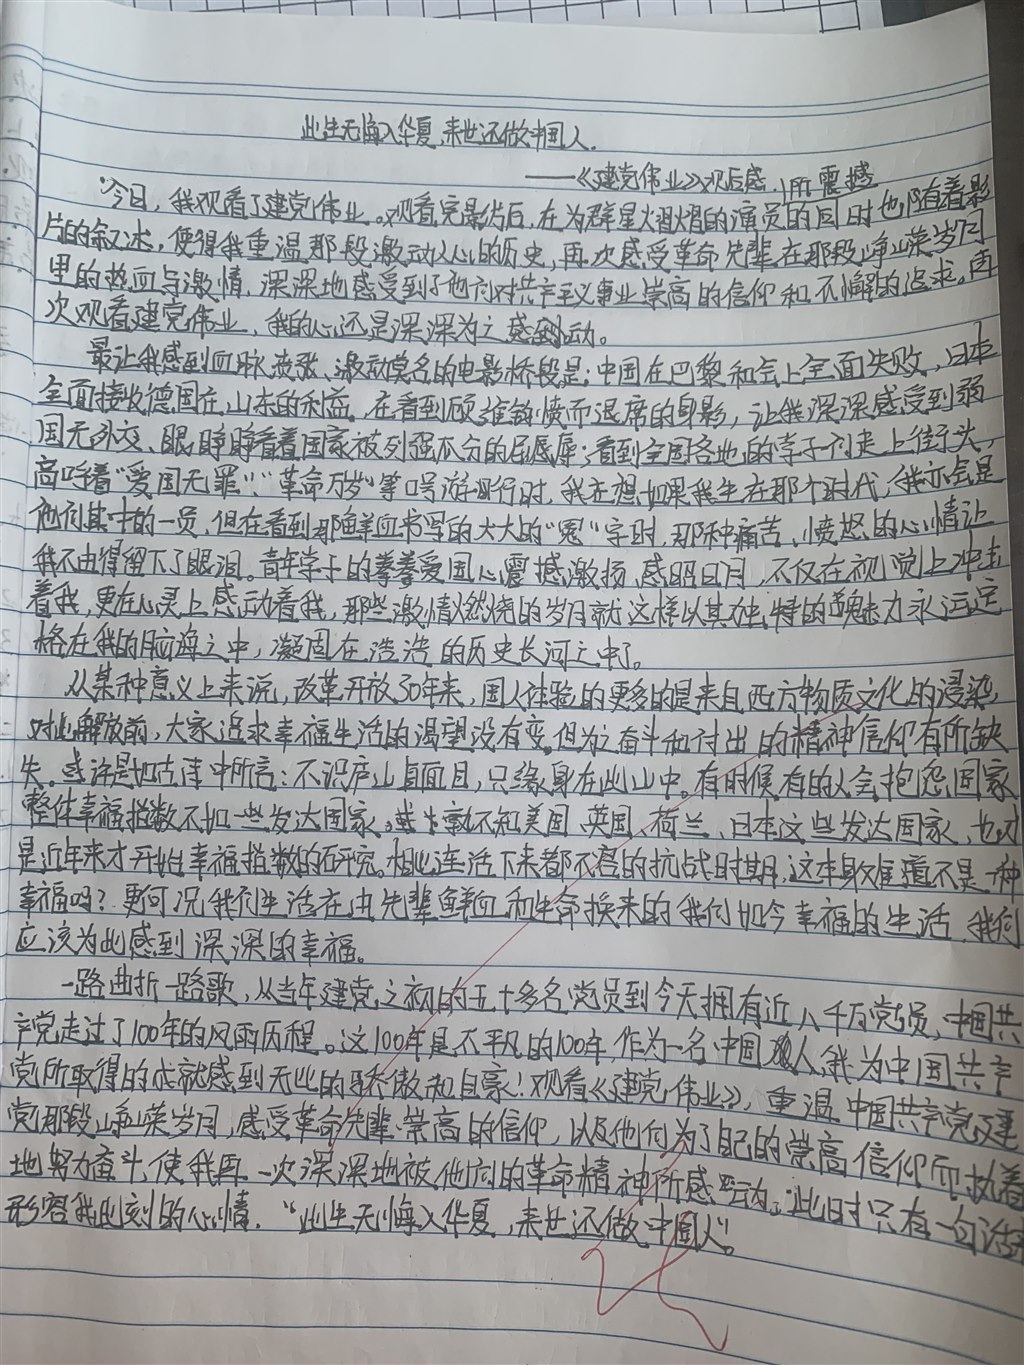 此生无悔入华夏,来世还做中国人.
——《建党伟业》观后感.
所震撼
今日,我观看了建党伟业。观看完影片后,在为群星熠熠的演员的同时也随着影
片的叙述,使得我重温那段激动人心的历史,再次感受革命先辈在那段峥嵘岁月
里的热血与激情,深深地感受到了他们对共产主义事业崇高的信仰和不懈的追求。再
次观看建党伟业,我的心还是深深为之感到动。
最让我感到血脉喷张、激动莫名的电影桥段是:中国在巴黎和会上全面失败,日本
全面接收德国在山东的利益。在看到顾维钧愤而退席的身影,让我深深感受到弱
国无外交、眼睁睁看着国家被列强瓜分的屈辱;看到全国各地的学子们走上街头,
高呼着“爱国无罪”、“革命万岁”等口号游行时,我在想如果我生在那个时代,我亦会是
他们其中的一员,但在看到那鲜血书写的大大的“冤”字时,那种痛苦、愤怒的心情让
我不由得留下了眼泪。青年学子的拳拳爱国心震撼激扬,感昭日月,不仅在视觉上冲击
着我,更在心灵上感动着我,那些激情燃烧的岁月就这样以其独特的魅力永远定
格在我的脑海之中,凝固在浩浩的历史长河之中了。
从某种意义上来说,改革开放30年来,国人体验的更多的是来自西方物质文化的浸染,
对比解放前,大家追求幸福生活的渴望没有变,但为之奋斗和付出的精神信仰有所缺
失。或许是如古诗中所言:不识庐山真面目,只缘身在此山中。有时候有的人会抱怨国家
整体幸福指数不如一些发达国家。孰不知美国、英国、荷兰、日本这些发达国家,也
是近年来才开始幸福指数的研究。相比连活下来都不容的抗战时期,这本身难道不是一种
幸福吗?更何况我们生活在由先辈鲜血和生命换来的我们如今幸福的生活,我们
应该为此感到深深的幸福。
一路曲折一路歌,从当年建党之初的五十多名党员到今天拥有近八千万党员,中国共
产党走过了100年的风雨历程。这100年是不平凡的100年,作为一名中国人,我为中国共产
党所取得的成就感到无比的骄傲和自豪!观看《建党伟业》,重温中国共产党建
党那段峥嵘岁月,感受革命先辈崇高的信仰,以及他们为了自己的崇高信仰而执着
地努力奋斗,使我再一次深深地被他们的革命精神所感动。此时只有一句话
形容我此刻的心情,“此生无悔入华夏,来世还做中国人”。